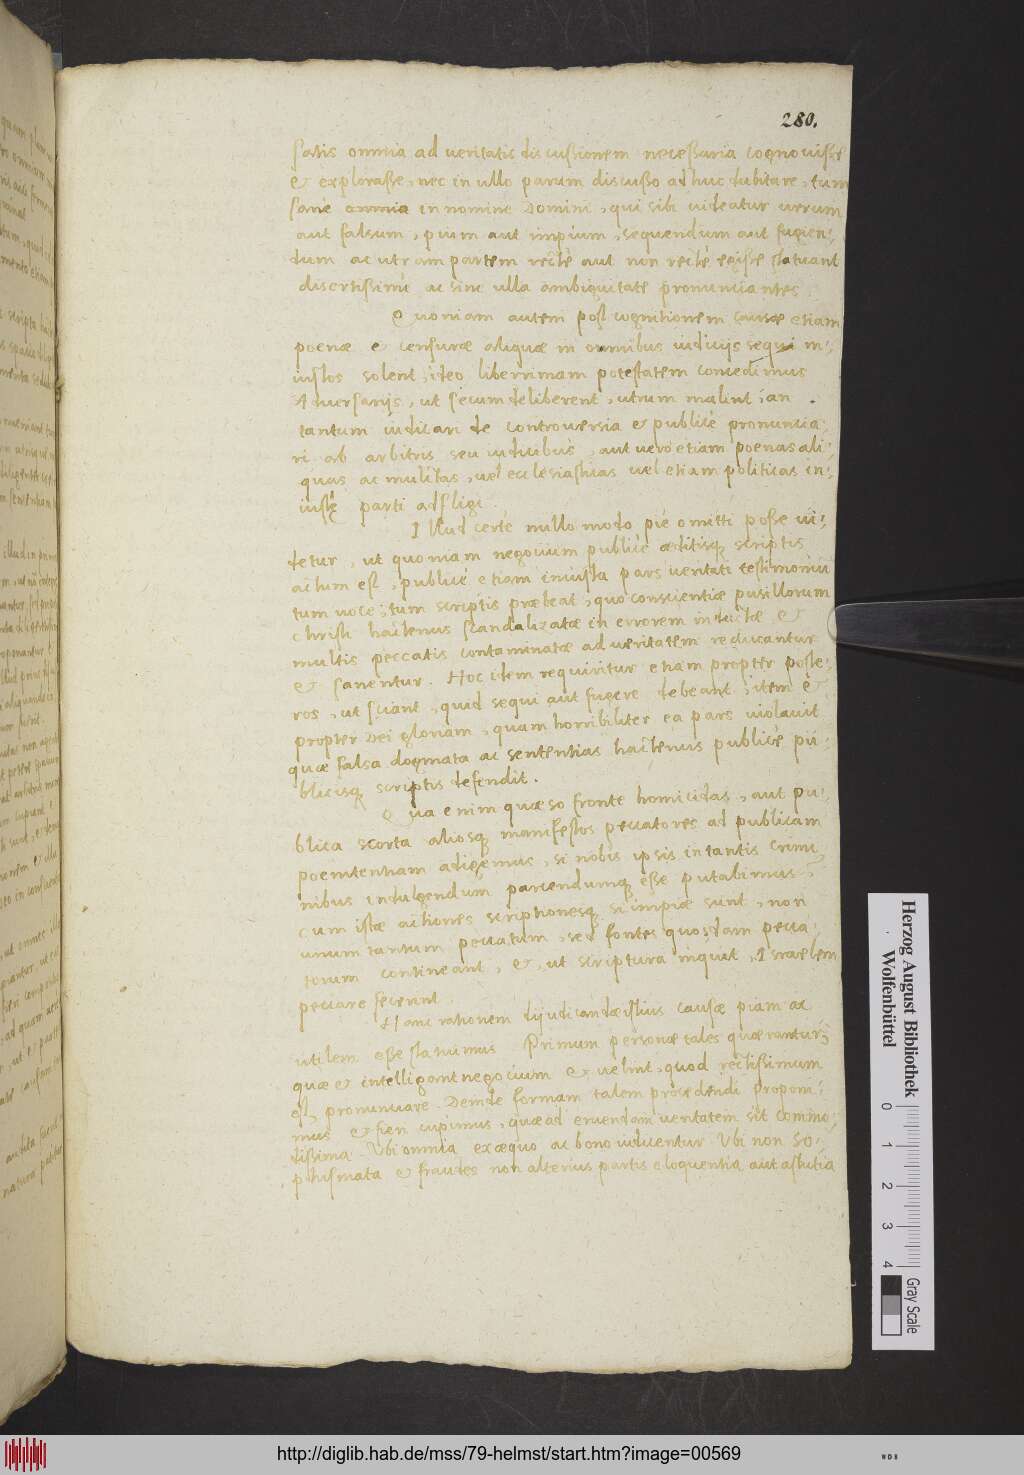 280.
satis omnia ad veritatis discussionem necessaria cognovisse
& explorasse, nec in ullo parum discusso adhuc dubitare, tum
sane omnia in nomine Domini, qui sibi videatur verum
aut falsum, pium aut impium, sequendum aut fugien-
dum ac utram partem rectè aut non rectè egisse statuant
disertissimè ac sine ulla ambiguitate pronunciantes.
Quoniam autem post cognitionem causæ etiam
poenæ & censuræ aliquæ in omnibus iudicijs sequi in-
iustos solent, ideo liberrimam potestatem concedimus
Adversarijs, ut secum deliberent, utrum malint, an
tantum iudicari de controversia & publicè pronuncia-
ri ab arbitris seu iudicibus, aut verò etiam poenas ali-
quas ac mulctas, vel ecclesiasticas vel etiam politicas in-
iustę parti adfligi.
Illud certè nullo modo piè omitti posse vi-
detur, ut quoniam negocium publicè æditisq; scriptis
actum est, publicè etiam iniusta pars veritati testimonium
tum voce, tum scriptis præbeat, quo conscientiæ pusillorum
Christi hactenus scandalizatæ in errorem inductæ &
multis peccatis contaminatæ ad veritatem reducantur
& sanentur. Hoc idem requiritur etiam propter poste-
ros, ut sciant, quid sequi aut fugere debeant, item &
propter Dei gloriam, quam horribiliter ea pars violavit
quæ falsa dogmata ac sententias hactenus publicè pu-
blicisq; scriptis defendit.
Qua enim quæso fronte homicidas, aut pu-
blica scorta aliosq; manifestos peccatores ad publicam
poenitentiam adigemus, si nobis ipsis in tantis crimi-
nibus indulgendum parcendumq; esse putabimus?
cum istæ actiones scriptionesq; si impiæ sunt, non
unum tantum peccatum, sed fontes quosdam pecca-
torum contineant, &, ut scriptura inquit, Israelem
peccare fecerint.
Hanc rationem dijudicandæ istius causæ piam ac
utilem esse statuimus. Primum personæ tales quærantur,
quæ & intelligant negocium & velint, quod rectissimum
est, pronunciare. Deinde formam talem procedendi proponi-
mus & fieri cupimus, quæ ad eruendam veritatem sit commo-
dissima. Ubi omnia ex æquo ac bono iudicentur. Ubi non So-
phismata & fraudes non alterius partis eloquentia aut astutia
Herzog August Bibliothek
Wolfenbüttel
0 1 2 3 4
Gray Scale
http://diglib.hab.de/mss/79-helmst/start.htm?image=00569
WDB